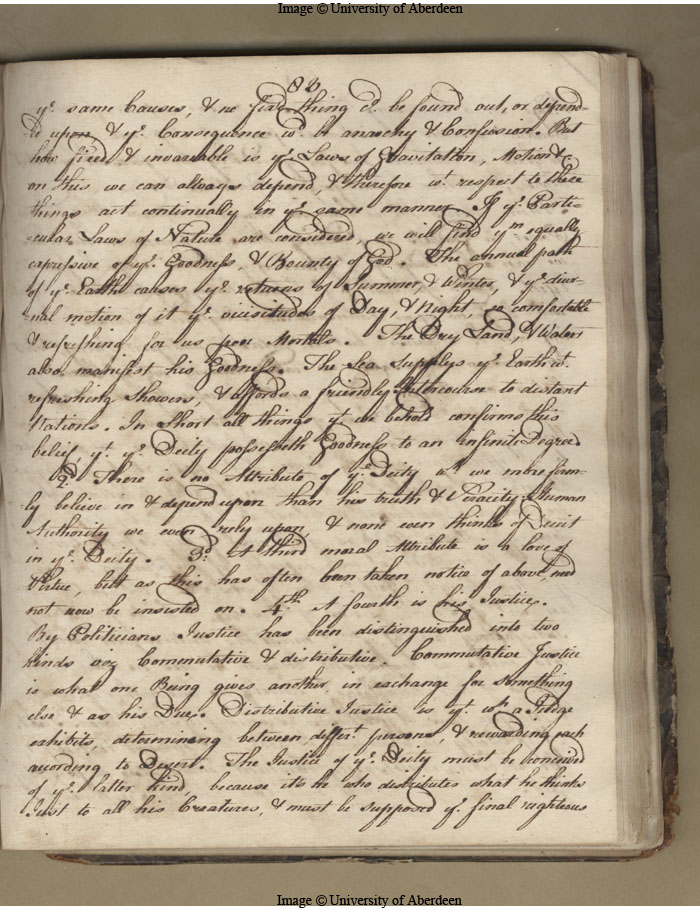 Image © University of Aberdeen
83
yͤ. same Causes, & no fix'd thing cᵈ. be found out, or depend-
ed upon & yͤ. Consequence wᵈ. be anarchy & Confusion. But
how fixed & invariable is yͤ. Laws of Gravitation, Motion &c
on this we can always depend, & therefore wᵗ. respect to these
things act continually in yͤ. same manner. If yͤ. Parti-
cular Laws of Nature are considered, we will find yᵐ equally
expressive of yͤ. Goodness, & Bounty of God. The annual path
of yͤ. Earth causes yͤ. returns of Summer, & Winter, & yͤ. diur-
nal motion of it yͤ. vicisitudes of Day, & Night, so comfortable
& refreshing for us poor Mortals. The Dry Land, & Waters
also manifest his Goodness. The Sea Supplys yͤ. Earth wᵗ.
refreshing Showers, & affords a friendly Intercourse to distant
Nations. In Short all things yᵗ we behold confirms this
belief, yᵗ. yͤ. Deity possesseth Goodness to an infinite Degree
2ᵈ. There is no Attribute of yͤ. Deity wᶜ. we more firm-
ly believe in & depend upon than his truth & Veracity. Human
Authority we even rely upon, & none even thinks of Deceit
in yͤ. Deity. 3ᵈ. A third moral Attribute is a love of
Virtue, but as this has often been taken notice of above, need
not now be insisted on. 4ᵗʰ. A fourth is his Justice.
By Politicians Justice has been distinguished into two
kinds viz Comenutative & distributive. Commutative Justice
is what one Being gives another in exchange for something
else & as his Due. Distributive Justice is yᵗ. wʰ a Judge
exhibits, determining between differᵗ. persons, & rewarding each
according to Desert. The Justice of yͤ. Deity must be conceived
of yͤ. latter kind, because its he who distributes what he thinks
Just to all his Creatures, & must be supposed yͤ. final righteous
Image © University of Aberdeen